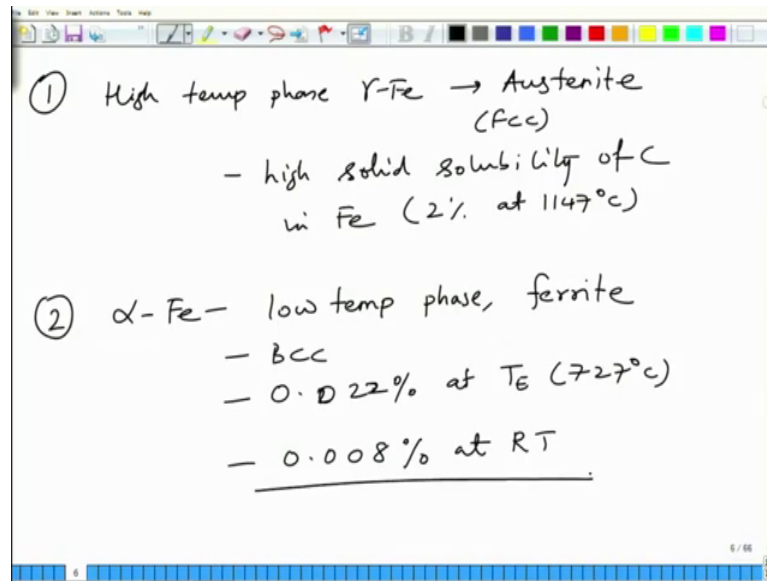 File Edit View Insert Actions Tools Help
B I
① High temp phase γ-Fe → Austenite
(FCC)
- high solid solubility of C
in Fe (2% at 1147°C)
② α-Fe - low temp phase, ferrite
- BCC
- 0.022% at TE (727°C)
- 0.008% at RT
6 / 66
6